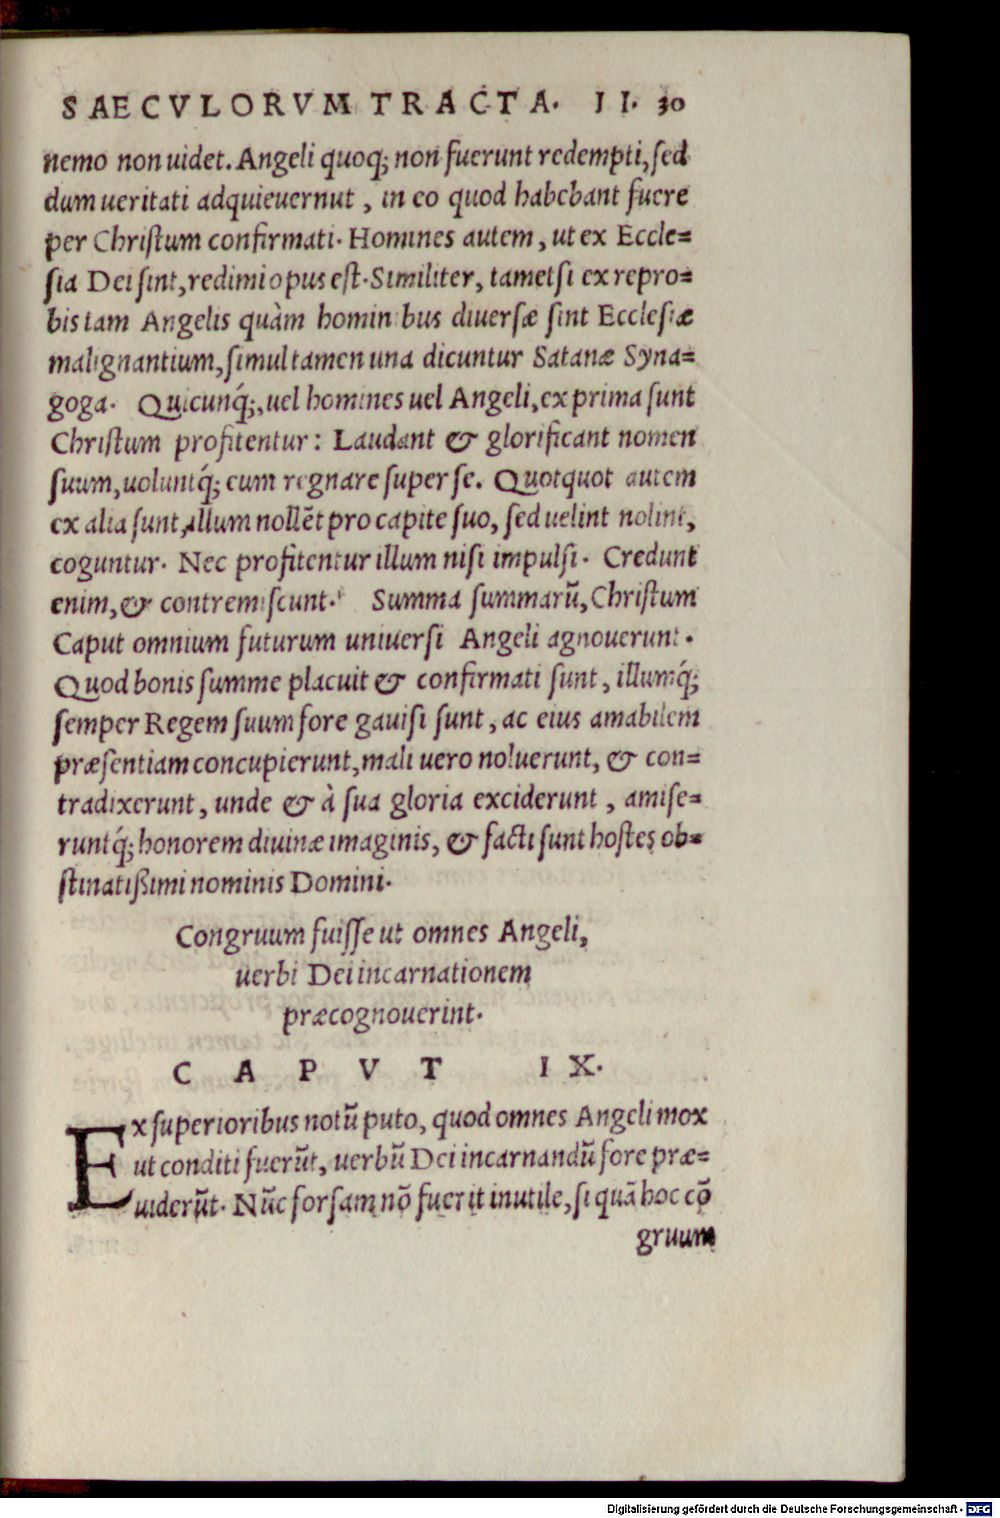 SAECVLORVM TRACTA. II. 30
nemo non uidet. Angeli quoq; non fuerunt redempti, sed
dum ueritati adquieuernut, in eo quod habebant fuere
per Christum confirmati. Homines autem, ut ex Eccle=
sia Dei sint, redimi opus est. Similiter, tametsi ex repro=
bis tam Angelis quàm homin bus diuersæ sint Ecclesiæ
malignantium, simul tamen una dicuntur Satanæ Syna=
goga. Quicunq́;, uel homines uel Angeli, ex prima sunt
Christum profitentur: Laudant & glorificant nomen
suum, uoluntq́; eum regnare super se. Quotquot autem
ex alia sunt, illum nollẽt pro capite suo, sed uelint nolint,
coguntur. Nec profitentur illum nisi impulsi. Credunt
enim, & contremiscunt. Summa summarũ, Christum
Caput omnium futurum uniuersi Angeli agnouerunt.
Quod bonis summe placuit & confirmati sunt, illumq́;
semper Regem suum fore gauisi sunt, ac eius amabilem
præsentiam concupierunt, mali uero noluerunt, & con=
tradixerunt, unde & à sua gloria exciderunt, amise=
runtq́; honorem diuinæ imaginis, & facti sunt hostes ob=
stinatißimi nominis Domini.
Congruum fuisse ut omnes Angeli,
uerbi Dei incarnationem
præcognouerint.
CAPVT IX.
Ex superioribus notũ puto, quod omnes Angeli mox
ut conditi fuerũt, uerbũ Dei incarnandũ fore præ=
uiderũt. Nũc forsam nõ fuerit inutile, si quã hoc cõ
gruum
Digitalisierung gefördert durch die Deutsche Forschungsgemeinschaft - DFG